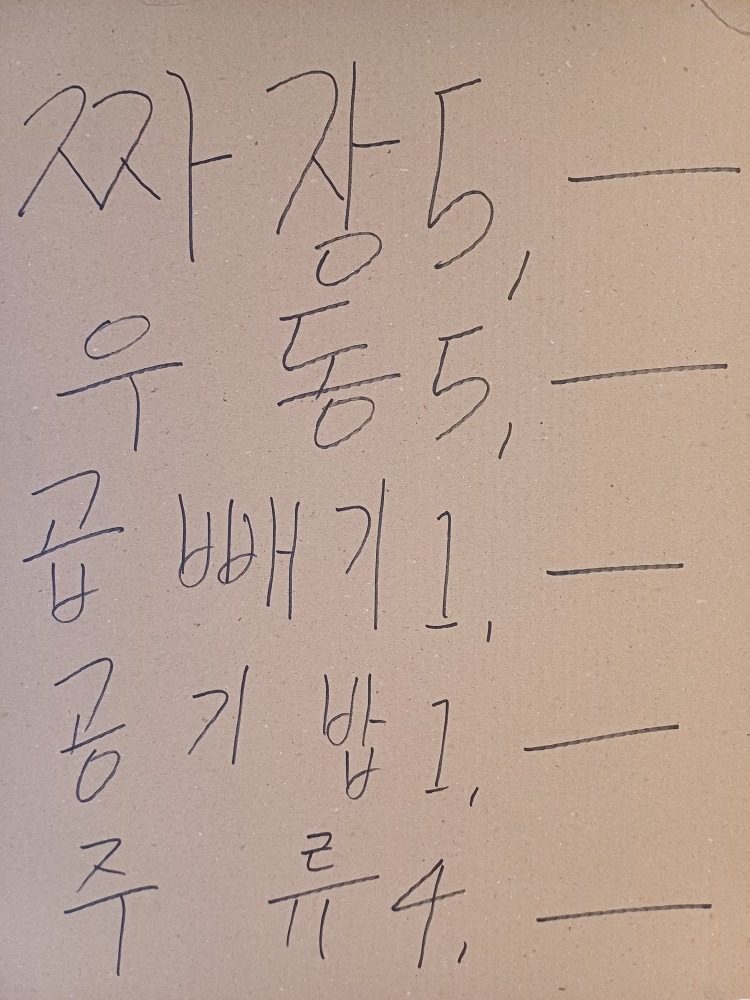 짜장 5,—
우동 5,—
곱빼기 1,—
공기밥 1,—
주류 4,—